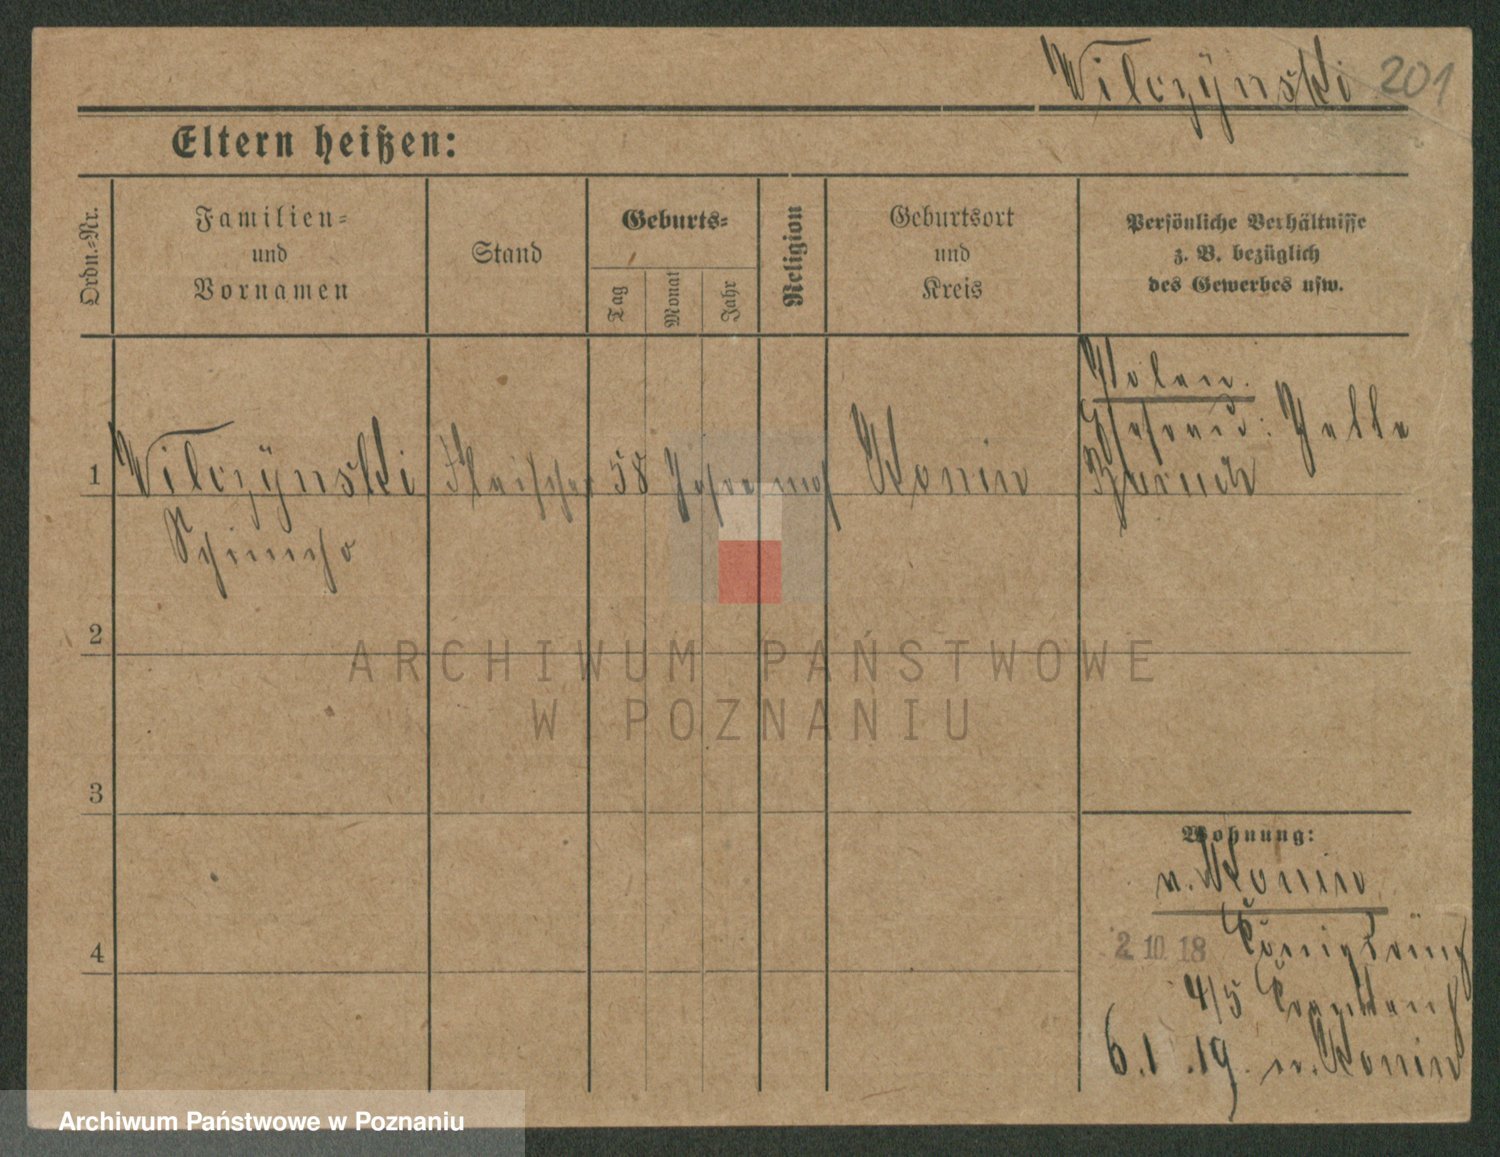 Wilczÿnski 201
Eltern heißen:
Ordn.-Nr.
Familien-
und
Vornamen
Stand
Geburts-
Tag
Monat
Jahr
Religion
Geburtsort
und
Kreis
Persönliche Verhältnisse
z. B. bezüglich
des Gewerbes usw.
Polen.
1 Wilczÿnski Fleischer 58 Jahre mos Konin
2
3
4
Wohnung:
v. Konin
2 10 18 Königsring
4/5
6.1.19. n. Konin
ARCHIWUM PAŃSTWOWE
W POZNANIU
Archiwum Państwowe w Poznaniu